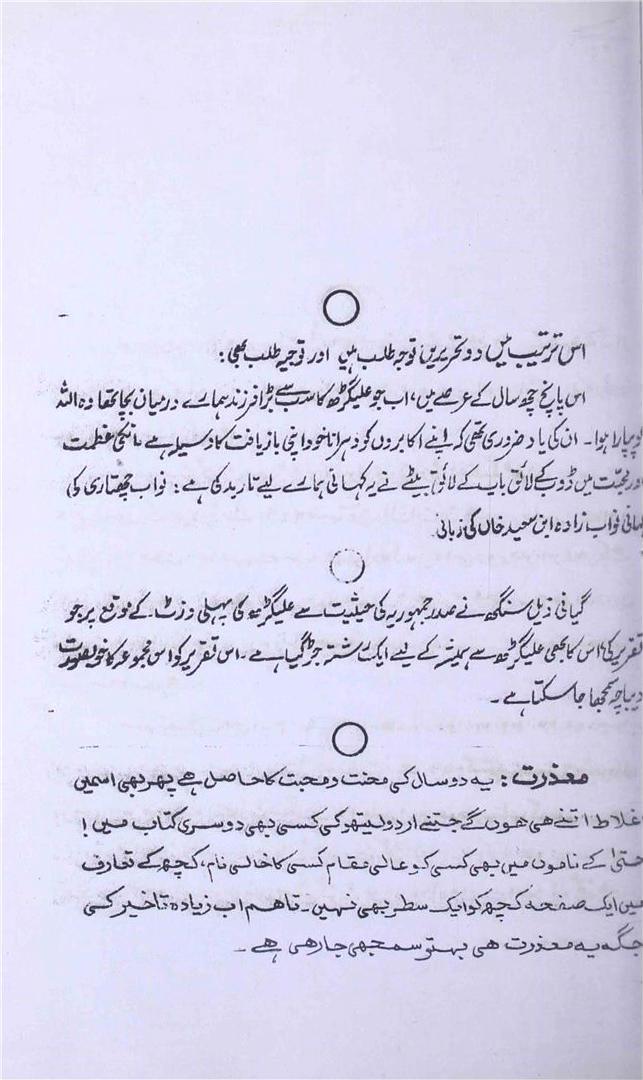 اس ترتیب میں دو تحریریں توجہ طلب ہیں اور توجیہ طلب بھی:
اس پانچ چھ سال کے عرصے میں، اب جو علیگڑھ کا سب سے بڑا فرزند ہمارے درمیان بچا تھا وہ اللہ
کو پیارا ہوا۔ ان کی یاد ضروری تھی کہ اپنے اکابروں کو دہرانا خود اپنی بازیافت کا وسیلہ ہے۔ انکی عظمت
اور محبّت میں ڈوب کے لائق باپ کے لائق بیٹے نے یہ کہانی ہمارے لیے تازہ کی ہے: نواب چھتاری کی
کہانی نواب زادہ ابن سعید خاں کی زبانی۔
گیانی ذیل سنگھ نے صدر جمہوریہ کی حیثیت سے علیگڑھ کی پہلی وزٹ کے موقع پر جو
تقریر کی اس کا بھی علیگڑھ سے ہمیشہ کے لیے ایک رشتہ جڑ گیا ہے۔ اس تقریر کو اس مجموعہ کا خوبصورت
دیباچہ سمجھا جا سکتا ہے۔
معذرت: یہ دو سال کی محنت و محبت کا حاصل ہے پھر بھی اسمیں
اغلاط اتنے ھی ھوں گے جتنے اردو لیتھو کی کسی بھی دوسری کتاب میں!
حتیٰ کے ناموں میں بھی کسی کو عالی مقام کسی کا خالی نام، کچھ کے تعارف
میں ایک صفحہ کچھ کو ایک سطر بھی نہیں۔ تاھم اب زیادہ تاخیر کسی
جگہ یہ معذرت ھی بہتر سمجھی جارھی ھے۔